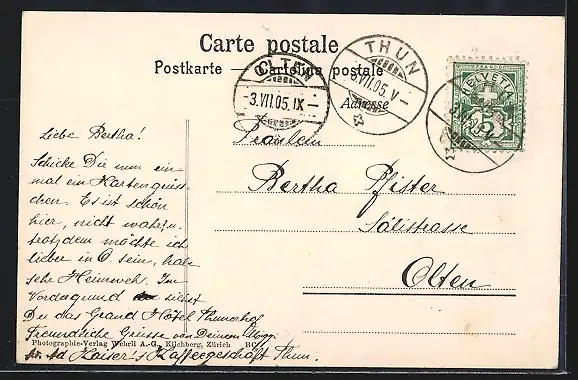 Carte postale
Postkarte — Cartolina postale
Adresse
OLTEN
-3.VII.05.IX-
THUN
3.VII.05.V-
HELVETIA
5
Liebe Bertha!
Schicke Dir nun ein-
mal ein Kartengrüss-
chen. Es ist schön
hier, nicht wahr?
trotzdem möchte ich
lieber in O sein, habe
sehr Heimweh. Im
Vordagrund siehst
Du das Grand Hôtel Thunerhof
Freundliche Grüsse von Deinem
Photographie-Verlag Wehrli A.-G., Kilchberg, Zürich
Kaiser's Kaffeegeschäft Thun.
Fräulein
Bertha Pfister
Sälistrasse
Olten